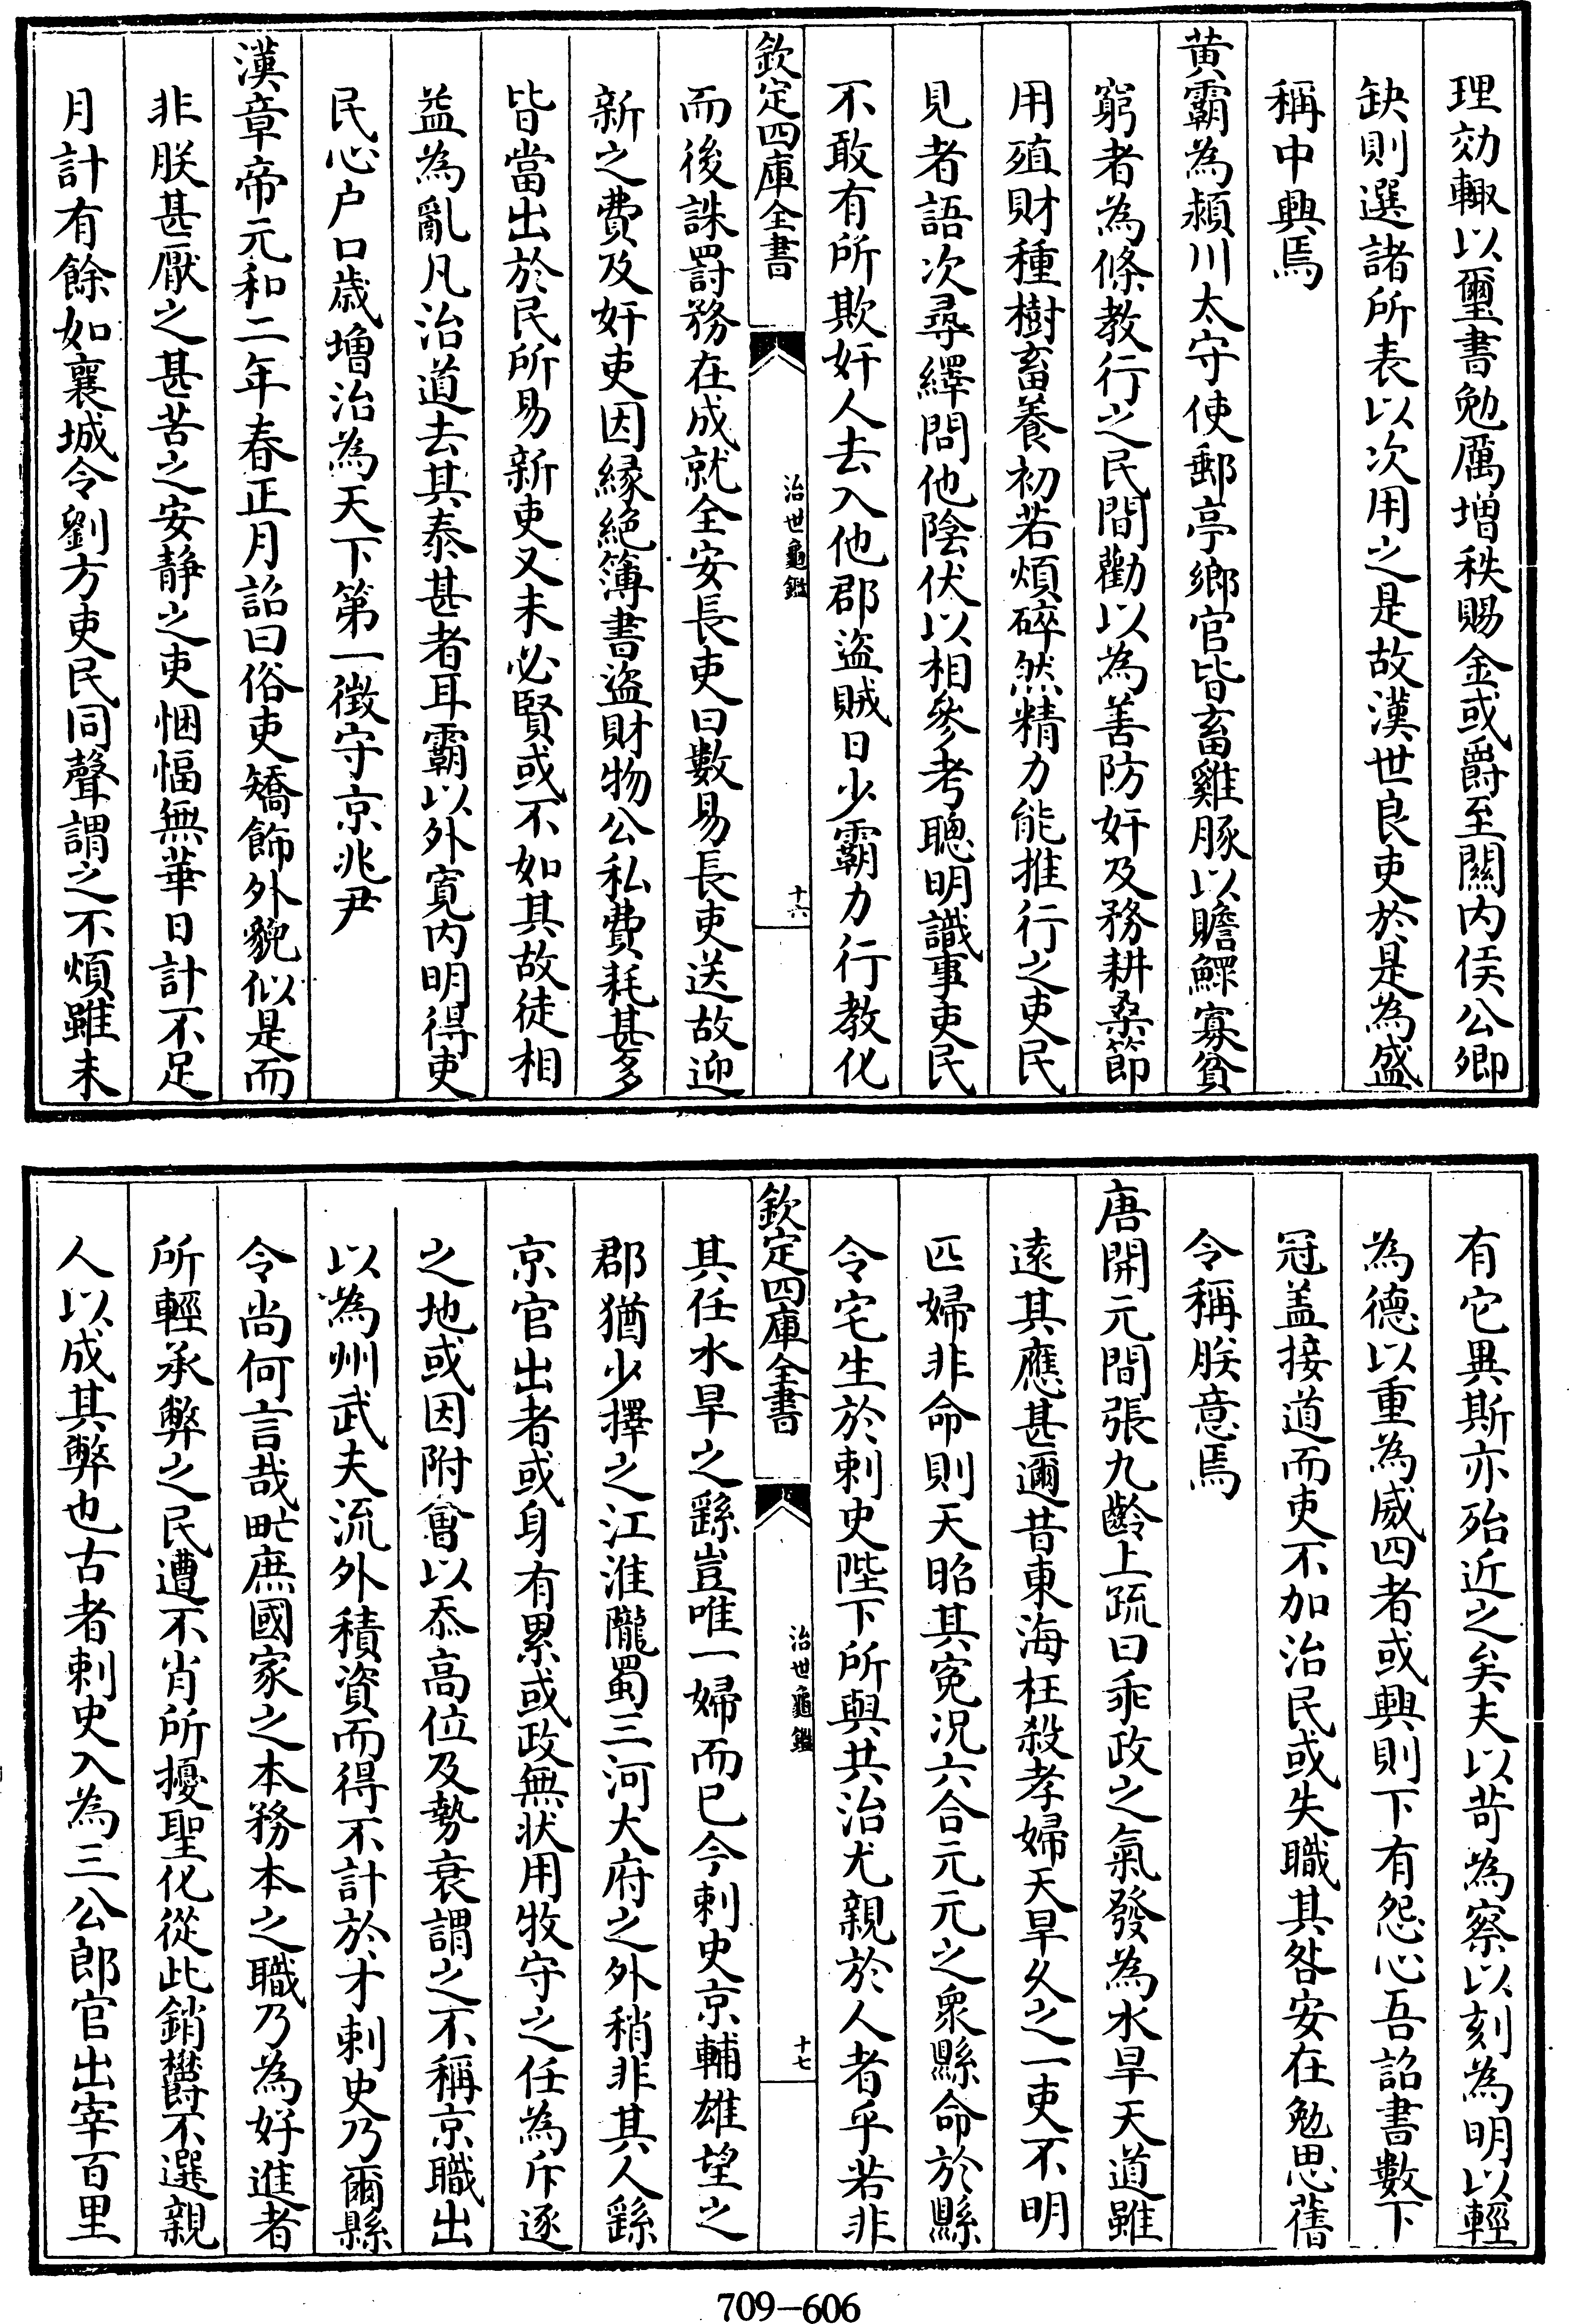 理効輙以璽書勉厲增秩賜金或爵至關内侯公卿
缺則選諸所表以次用之是故漢世良吏於是為盛
稱中興焉
黄霸為潁川太守使郵亭鄉官皆畜雞豚以贍鰥寡貧
窮者為條教行之民間勸以為善防奸及務耕桑節
用殖財種樹畜養初若煩碎然精力能推行之吏民
見者語次尋繹問他陰伏以相參考聰明識事吏民
不敢有所欺奸人去入他郡盜賊日少霸力行教化
欽定四庫全書
治世龜鑑
十六
而後誅罰務在成就全安長吏曰數易長吏送故迎
新之費及奸吏因縁絶簿書盜財物公私費耗甚多
皆當出於民所易新吏又未必賢或不如其故徒相
益為亂凡治道去其泰甚者耳霸以外寛内明得吏
民心户口歲增治為天下第一徴守京兆尹
漢章帝元和二年春正月詔曰俗吏矯飾外貌似是而
非朕甚厭之甚苦之安静之吏悃愊無華日計不足
月計有餘如襄城令劉方吏民同聲謂之不煩雖未
有它異斯亦殆近之矣夫以苛為察以刻為明以輕
為德以重為威四者或興則下有怨心吾詔書數下
冠盖接道而吏不加治民或失職其咎安在勉思舊
令稱朕意焉
唐開元間張九齡上疏曰乖政之氣發為水旱天道雖
逺其應甚邇昔東海枉殺孝婦天旱久之一吏不明
匹婦非命則天昭其寃況六合元元之衆縣命於縣
令宅生於刺史陛下所與共治尤親於人者乎若非
欽定四庫全書
治世龜鑑
十七
其任水旱之繇豈唯一婦而已今刺史京輔雄望之
郡猶少擇之江淮隴蜀三河大府之外稍非其人繇
京官出者或身有累或政無狀用牧守之任為斥逐
之地或因附㑹以忝高位及勢衰謂之不稱京職出
以為州武夫流外積資而得不計於才刺史乃爾縣
令尚何言哉甿庶國家之本務本之職乃為好進者
所輕承弊之民遭不肖所擾聖化從此銷鬱不選親
人以成其弊也古者刺史入為三公郎官出宰百里
709—606